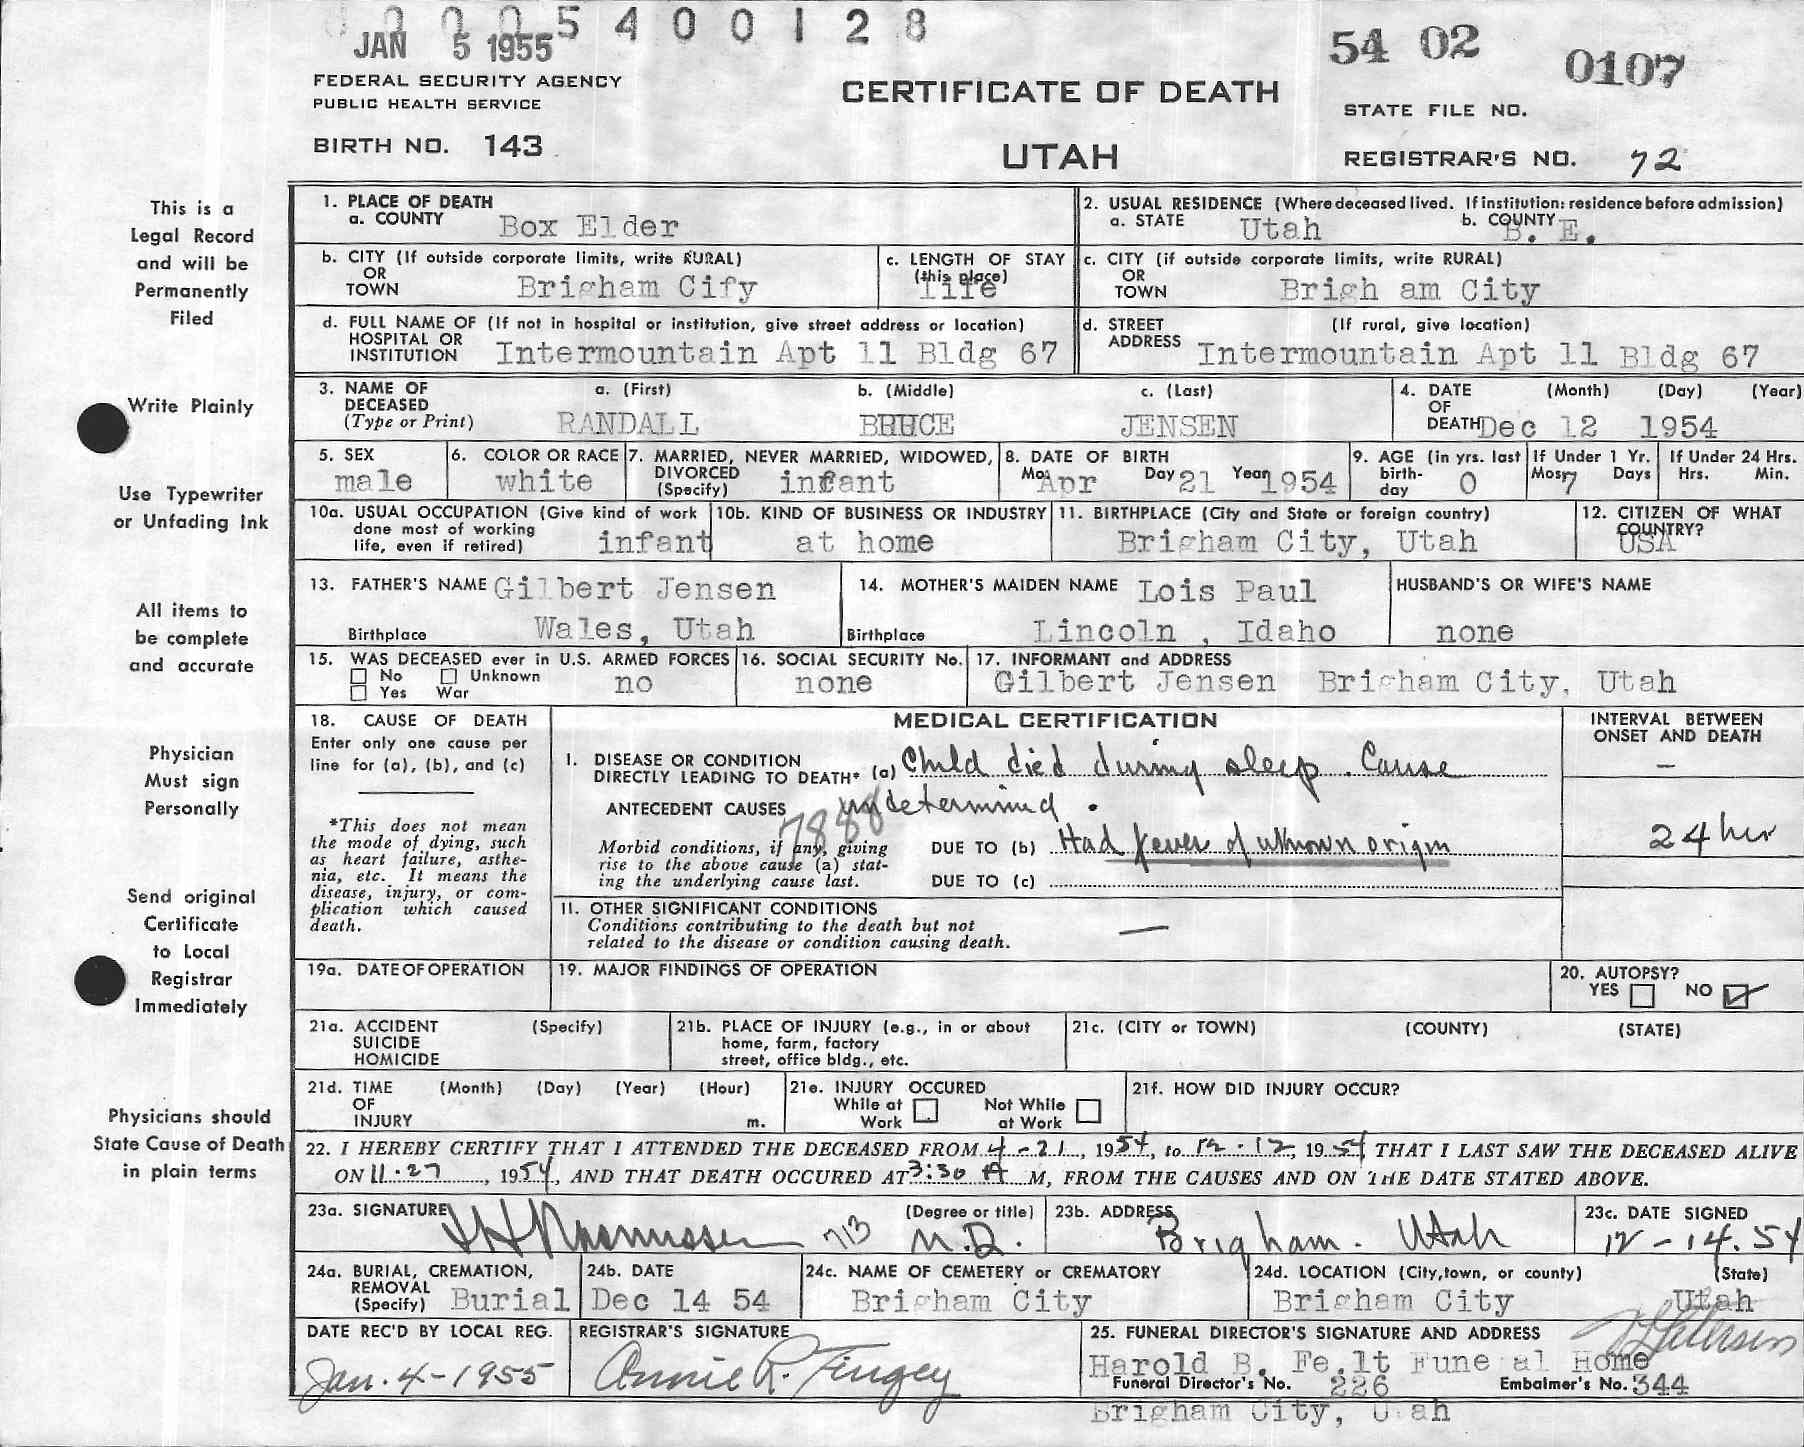 5 4 0 0 1 2 8
JAN 5 1955
54 02
0107
FEDERAL SECURITY AGENCY
PUBLIC HEALTH SERVICE
CERTIFICATE OF DEATH
STATE FILE NO.
BIRTH NO. 143
UTAH
REGISTRAR'S NO. 72
This is a
Legal Record
and will be
Permanently
Filed
Write Plainly
Use Typewriter
or Unfading Ink
All items to
be complete
and accurate
Physician
Must sign
Personally
Send original
Certificate
to Local
Registrar
Immediately
Physicians should
State Cause of Death
in plain terms
1. PLACE OF DEATH
a. COUNTY Box Elder
2. USUAL RESIDENCE (Where deceased lived. If institution: residence before admission)
a. STATE Utah b. COUNTY B. E.
b. CITY (If outside corporate limits, write RURAL)
OR
TOWN Brigham City
c. LENGTH OF STAY
(this place)
life
c. CITY (if outside corporate limits, write RURAL)
OR
TOWN Brigh am City
d. FULL NAME OF (If not in hospital or institution, give street address or location)
HOSPITAL OR
INSTITUTION Intermountain Apt 11 Bldg 67
d. STREET (If rural, give location)
ADDRESS Intermountain Apt 11 Bldg 67
3. NAME OF a. (First) b. (Middle) c. (Last)
DECEASED
(Type or Print) RANDALL BRUCE JENSEN
4. DATE (Month) (Day) (Year)
OF
DEATH Dec 12 1954
5. SEX
male
6. COLOR OR RACE
white
7. MARRIED, NEVER MARRIED, WIDOWED,
DIVORCED
(Specify) infant
8. DATE OF BIRTH
Mo. Apr Day 21 Year 1954
9. AGE (in yrs. last
birth-
day 0
If Under 1 Yr.
Mos. 7 Days
If Under 24 Hrs.
Hrs. Min.
10a. USUAL OCCUPATION (Give kind of work
done most of working
life, even if retired) infant
10b. KIND OF BUSINESS OR INDUSTRY
at home
11. BIRTHPLACE (City and State or foreign country)
Brigham City, Utah
12. CITIZEN OF WHAT
COUNTRY?
USA
13. FATHER'S NAME Gilbert Jensen
Birthplace Wales, Utah
14. MOTHER'S MAIDEN NAME Lois Paul
Birthplace Lincoln , Idaho
HUSBAND'S OR WIFE'S NAME
none
15. WAS DECEASED ever in U.S. ARMED FORCES
No Unknown
Yes War no
16. SOCIAL SECURITY No.
none
17. INFORMANT and ADDRESS
Gilbert Jensen Brigham City, Utah
18. CAUSE OF DEATH
Enter only one cause per
line for (a), (b), and (c)
*This does not mean
the mode of dying, such
as heart failure, asthe-
nia, etc. It means the
disease, injury, or com-
plication which caused
death.
MEDICAL CERTIFICATION
INTERVAL BETWEEN
ONSET AND DEATH
I. DISEASE OR CONDITION
DIRECTLY LEADING TO DEATH* (a) Child died during sleep. Cause
–
ANTECEDENT CAUSES undetermined.
7888
Morbid conditions, if any, giving
rise to the above cause (a) stat-
ing the underlying cause last.
DUE TO (b) Had fever of unknown origin
24 hr
DUE TO (c)
11. OTHER SIGNIFICANT CONDITIONS
Conditions contributing to the death but not
related to the disease or condition causing death. —
19a. DATE OF OPERATION
19. MAJOR FINDINGS OF OPERATION
20. AUTOPSY?
YES NO
21a. ACCIDENT (Specify)
SUICIDE
HOMICIDE
21b. PLACE OF INJURY (e.g., in or about
home, farm, factory
street, office bldg., etc.
21c. (CITY or TOWN) (COUNTY) (STATE)
21d. TIME (Month) (Day) (Year) (Hour)
OF
INJURY m.
21e. INJURY OCCURED
While at Not While
Work at Work
21f. HOW DID INJURY OCCUR?
22. I HEREBY CERTIFY THAT I ATTENDED THE DECEASED FROM 4-21, 1954, to 12-12, 1954 THAT I LAST SAW THE DECEASED ALIVE
ON 11-27, 1954, AND THAT DEATH OCCURED AT 3:30 A M, FROM THE CAUSES AND ON THE DATE STATED ABOVE.
23a. SIGNATURE (Degree or title)
Rasmussen 713 M.D.
23b. ADDRESS
Brigham. Utah
23c. DATE SIGNED
12-14.54
24a. BURIAL, CREMATION,
REMOVAL
(Specify) Burial
24b. DATE
Dec 14 54
24c. NAME OF CEMETERY or CREMATORY
Brigham City
24d. LOCATION (City, town, or county) (State)
Brigham City Utah
DATE REC'D BY LOCAL REG.
Jan. 4-1955
REGISTRAR'S SIGNATURE
Annie R. Fingey
25. FUNERAL DIRECTOR'S SIGNATURE AND ADDRESS
Harold B. Fe.lt Funeral Home
Funeral Director's No. 226 Embalmer's No. 344
Brigham City, Utah